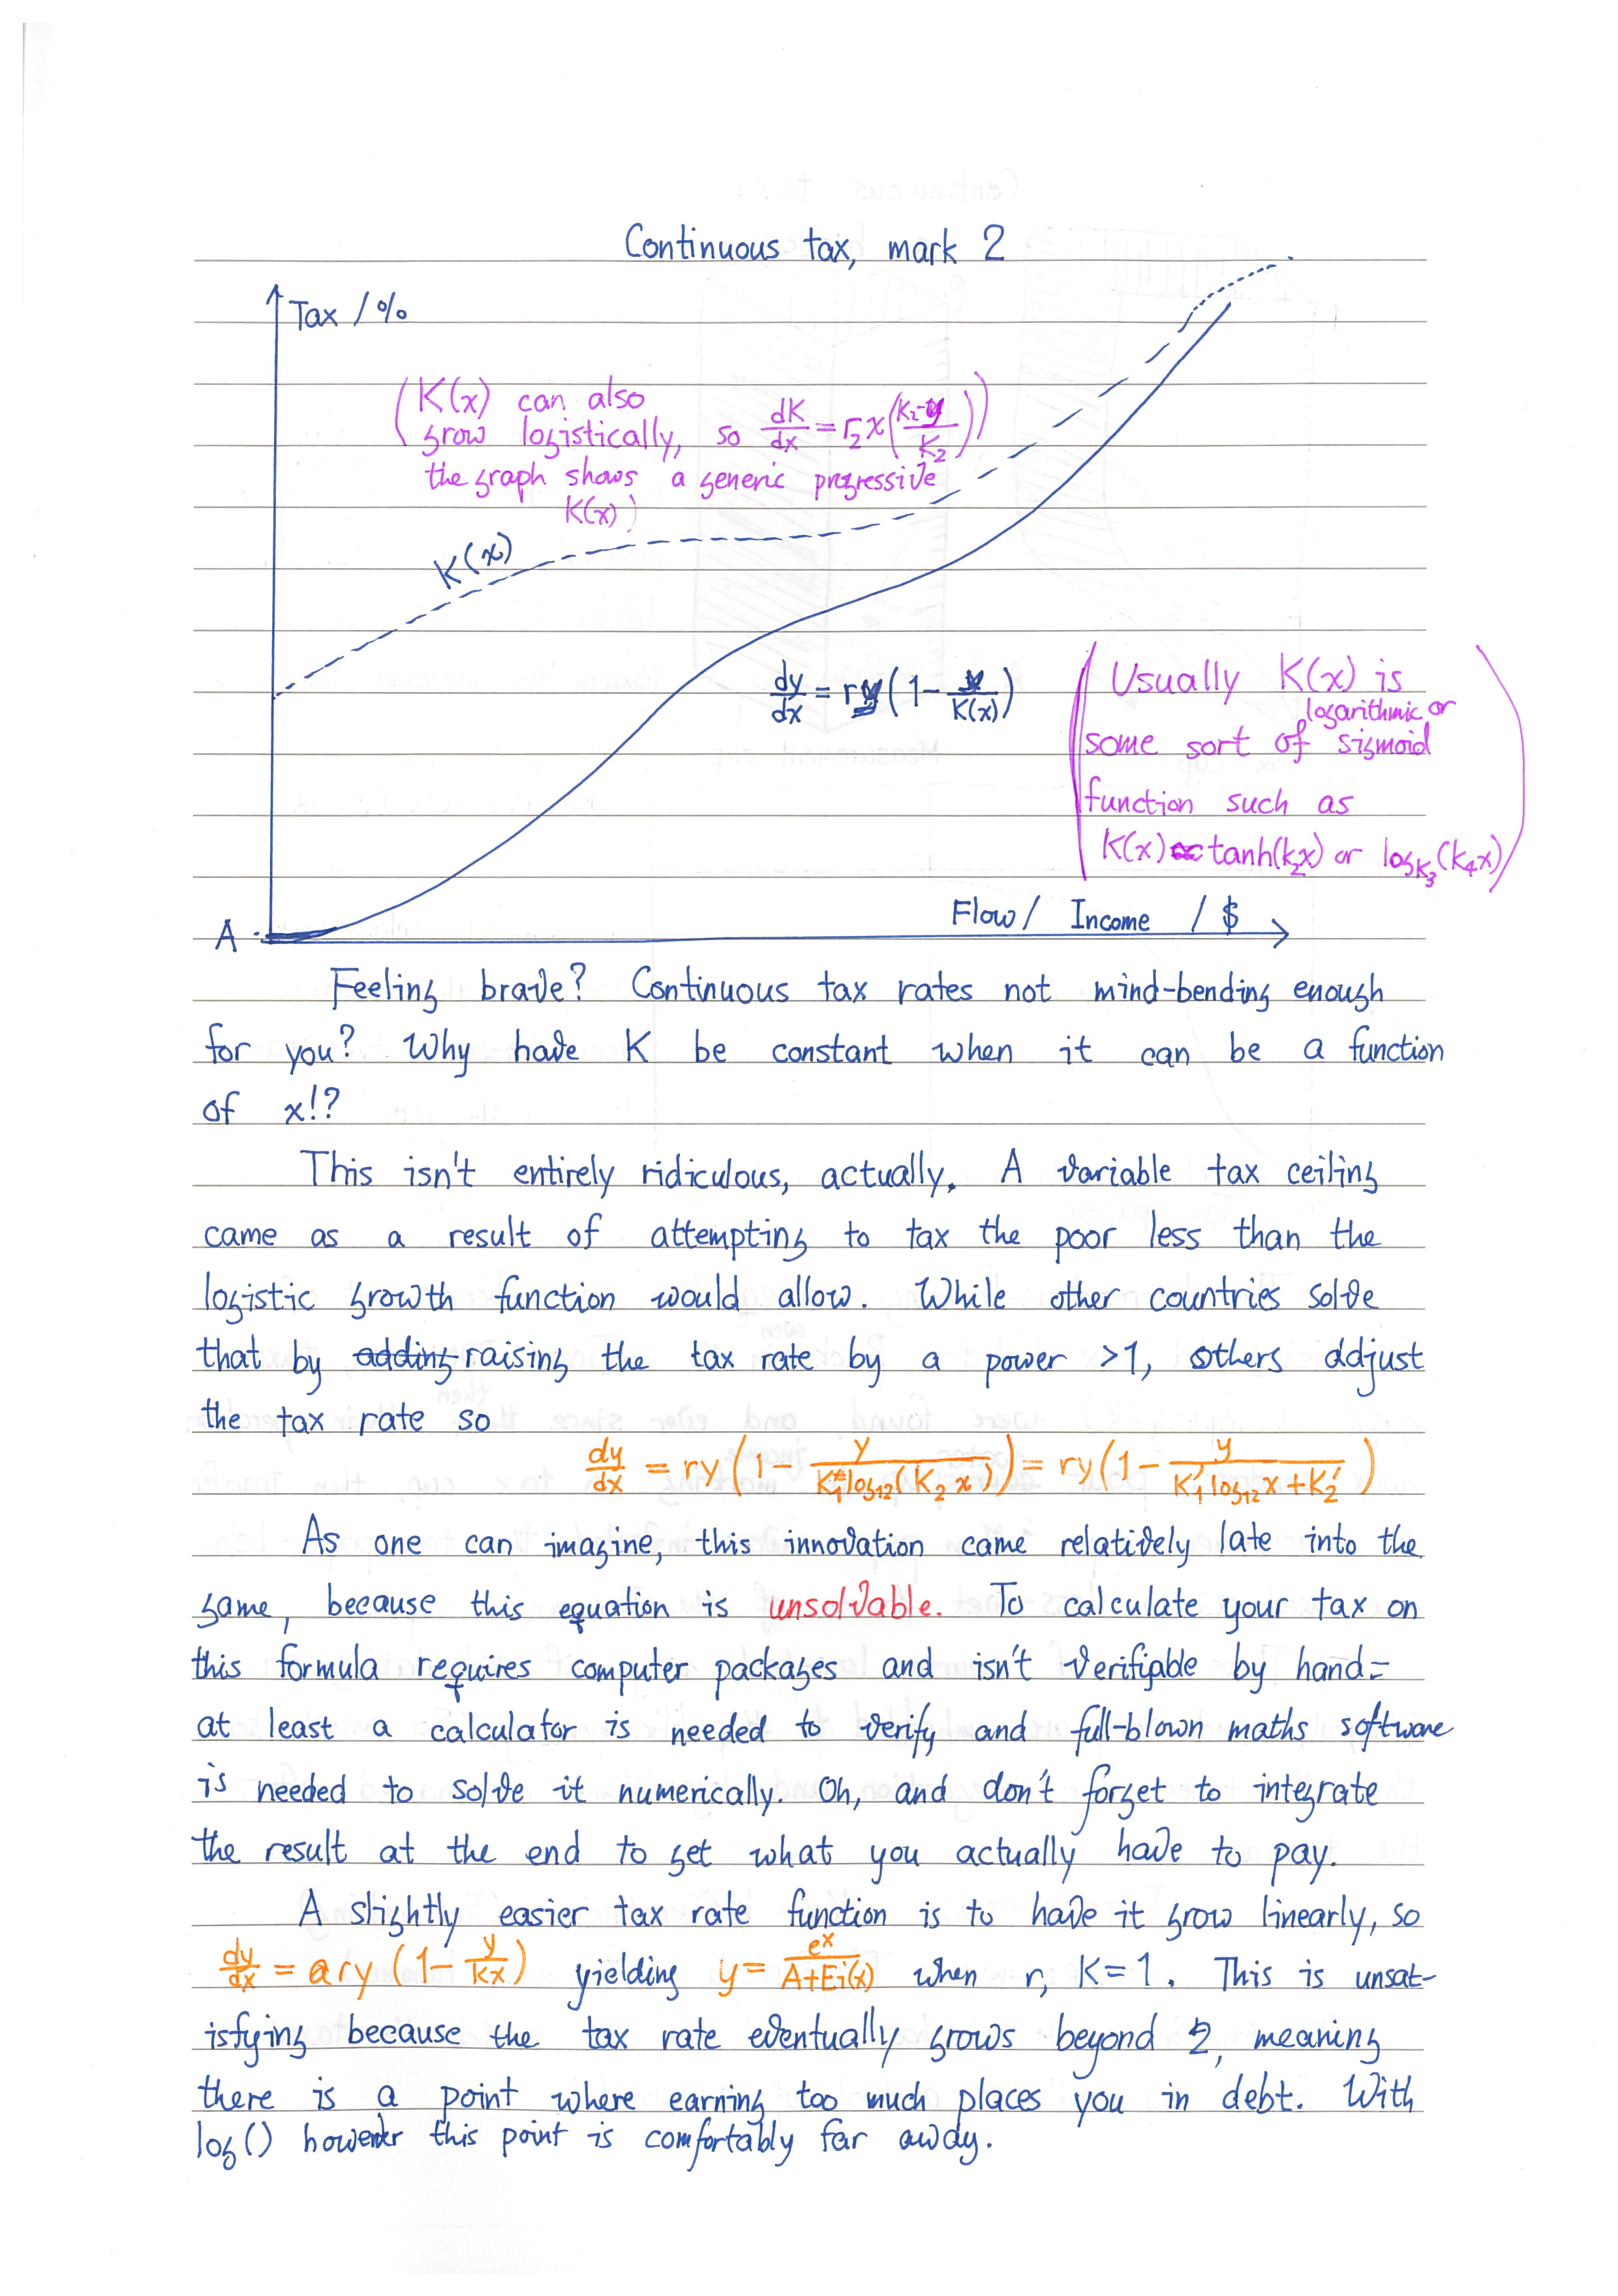 Continuous tax, mark 2
Tax / %
(K(x) can also
grow logistically, so dK/dx = r₂x((K₂-y)/K₂))
the graph shows a generic progressive
K(x))
K(x)
dy/dx = ry(1 - y/K(x))
(Usually K(x) is
logarithmic or
some sort of sigmoid
function such as
K(x) ∝ tanh(k₂x) or log_K₃(k₄x))
Flow / Income / $
A
Feeling brave? Continuous tax rates not mind-bending enough
for you? Why have K be constant when it can be a function
of x!?
This isn't entirely ridiculous, actually. A variable tax ceiling
came as a result of attempting to tax the poor less than the
logistic growth function would allow. While other countries solve
that by adding raising the tax rate by a power >1, others adjust
the tax rate so
dy/dx = ry(1 - y/(K₁log₁₂(K₂x))) = ry(1 - y/(K₁'log₁₂x + K₂'))
As one can imagine, this innovation came relatively late into the
game, because this equation is unsolvable. To calculate your tax on
this formula requires computer packages and isn't verifiable by hand=
at least a calculator is needed to verify and full-blown maths software
is needed to solve it numerically. Oh, and don't forget to integrate
the result at the end to get what you actually have to pay.
A slightly easier tax rate function is to have it grow linearly, so
dy/dx = ary(1 - y/Kx) yielding y = e^x/(A+Ei(x)) when r, K=1. This is unsat-
isfying because the tax rate eventually grows beyond 2, meaning
there is a point where earning too much places you in debt. With
log() however this point is comfortably far away.